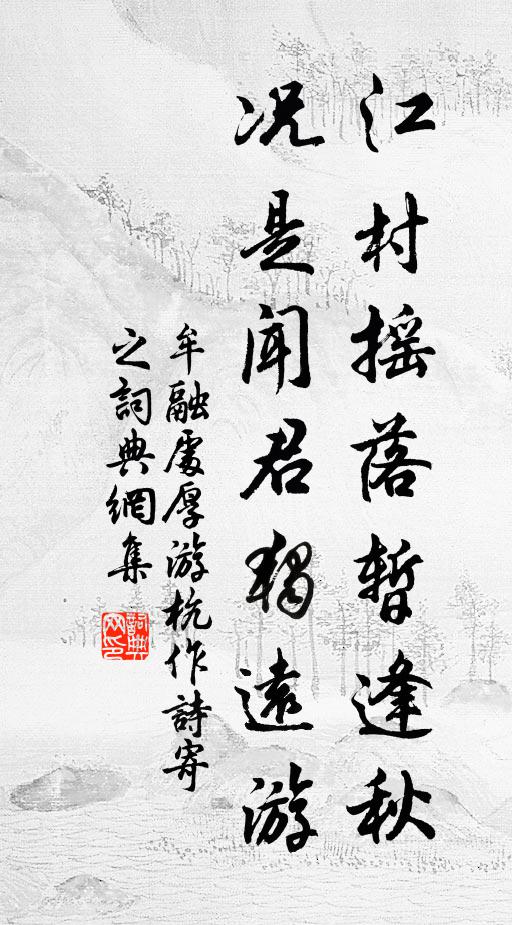 江村摇落暂逢秋
况是闻君独远游
牟融處厚游杭作詩寄
之詞典網集
詞典网印